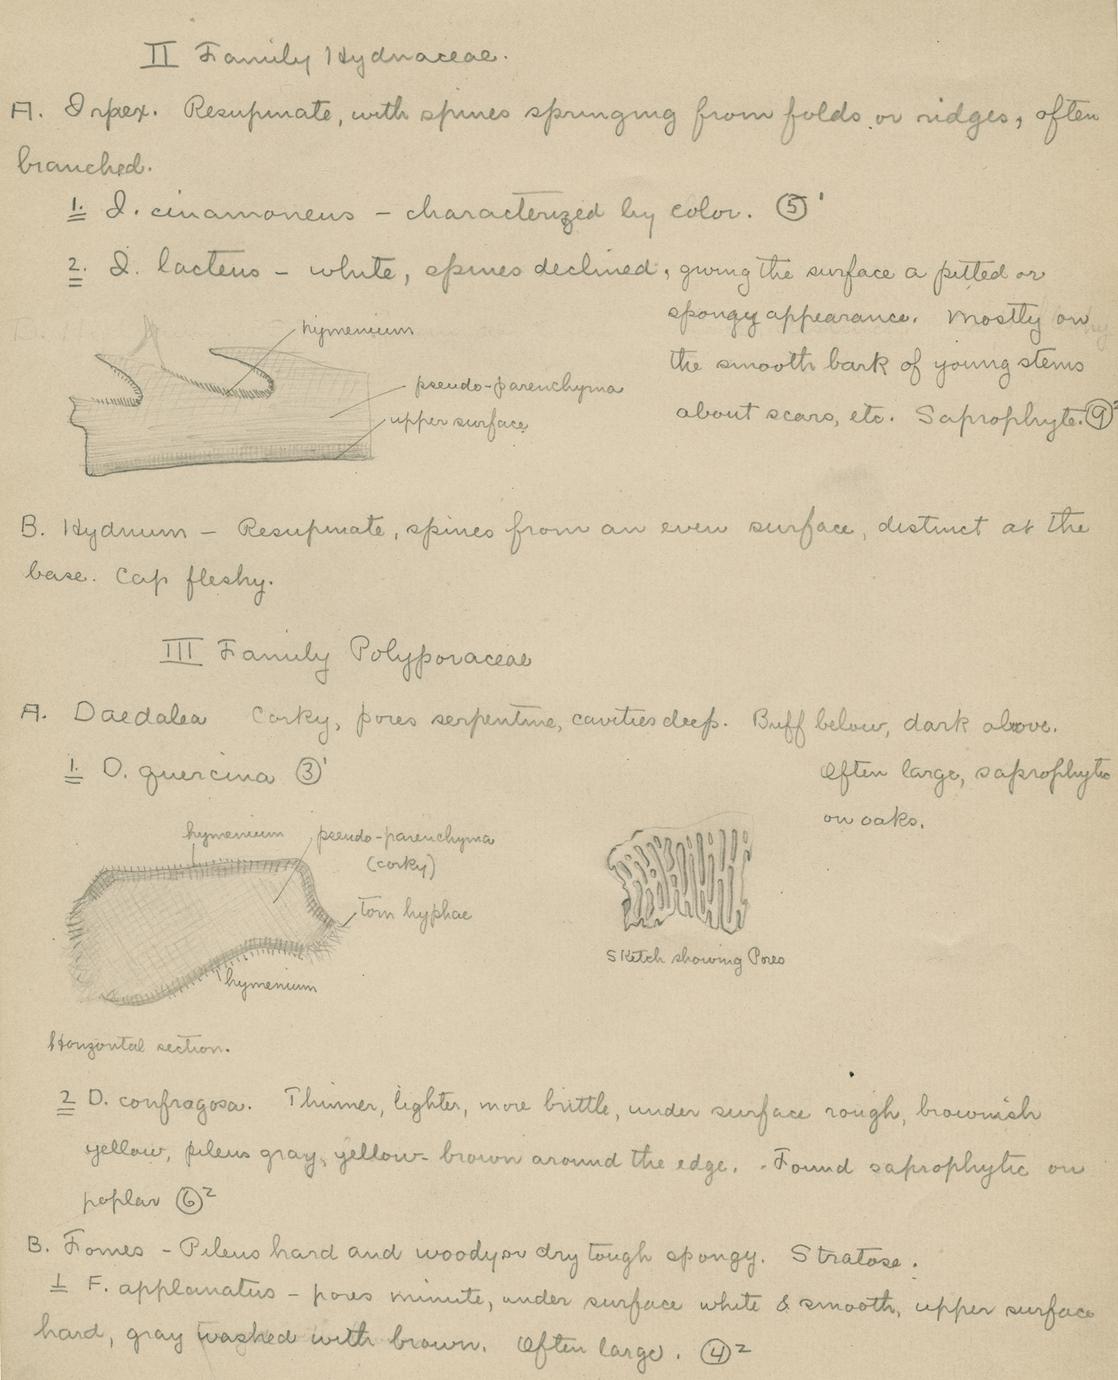 II Family Hydnaceae.
A. Irpex. Resupinate, with spines springing from folds or ridges, often
branched.
1. I. cinamoneus – characterized by color. ⑤'
2. I. lacteus – white, spines declined, giving the surface a pitted or
spongy appearance. Mostly on
the smooth bark of young stems
about scars, etc. Saprophyte. ⑨²
hymenium
pseudo-parenchyma
upper surface
B. Hydnum – Resupinate, spines from an even surface, distinct at the
base. Cap fleshy.
III Family Polyporaceae
A. Daedalea Corky, pores serpentine, cavities deep. Buff below, dark above.
Often large, saprophytic
on oaks.
1. D. quercina ③'
hymenium
pseudo-parenchyma
(corky)
torn hyphae
hymenium
Sketch showing Pores
Horizontal section.
2 D. confragosa. Thinner, lighter, more brittle, under surface rough, brownish
yellow, pileus gray, yellow-brown around the edge. Found saprophytic on
poplar ⑥²
B. Fomes – Pileus hard and woody or dry tough spongy. Stratose.
1 F. applanatus – pores minute, under surface white & smooth, upper surface
hard, gray washed with brown. Often large. ④²